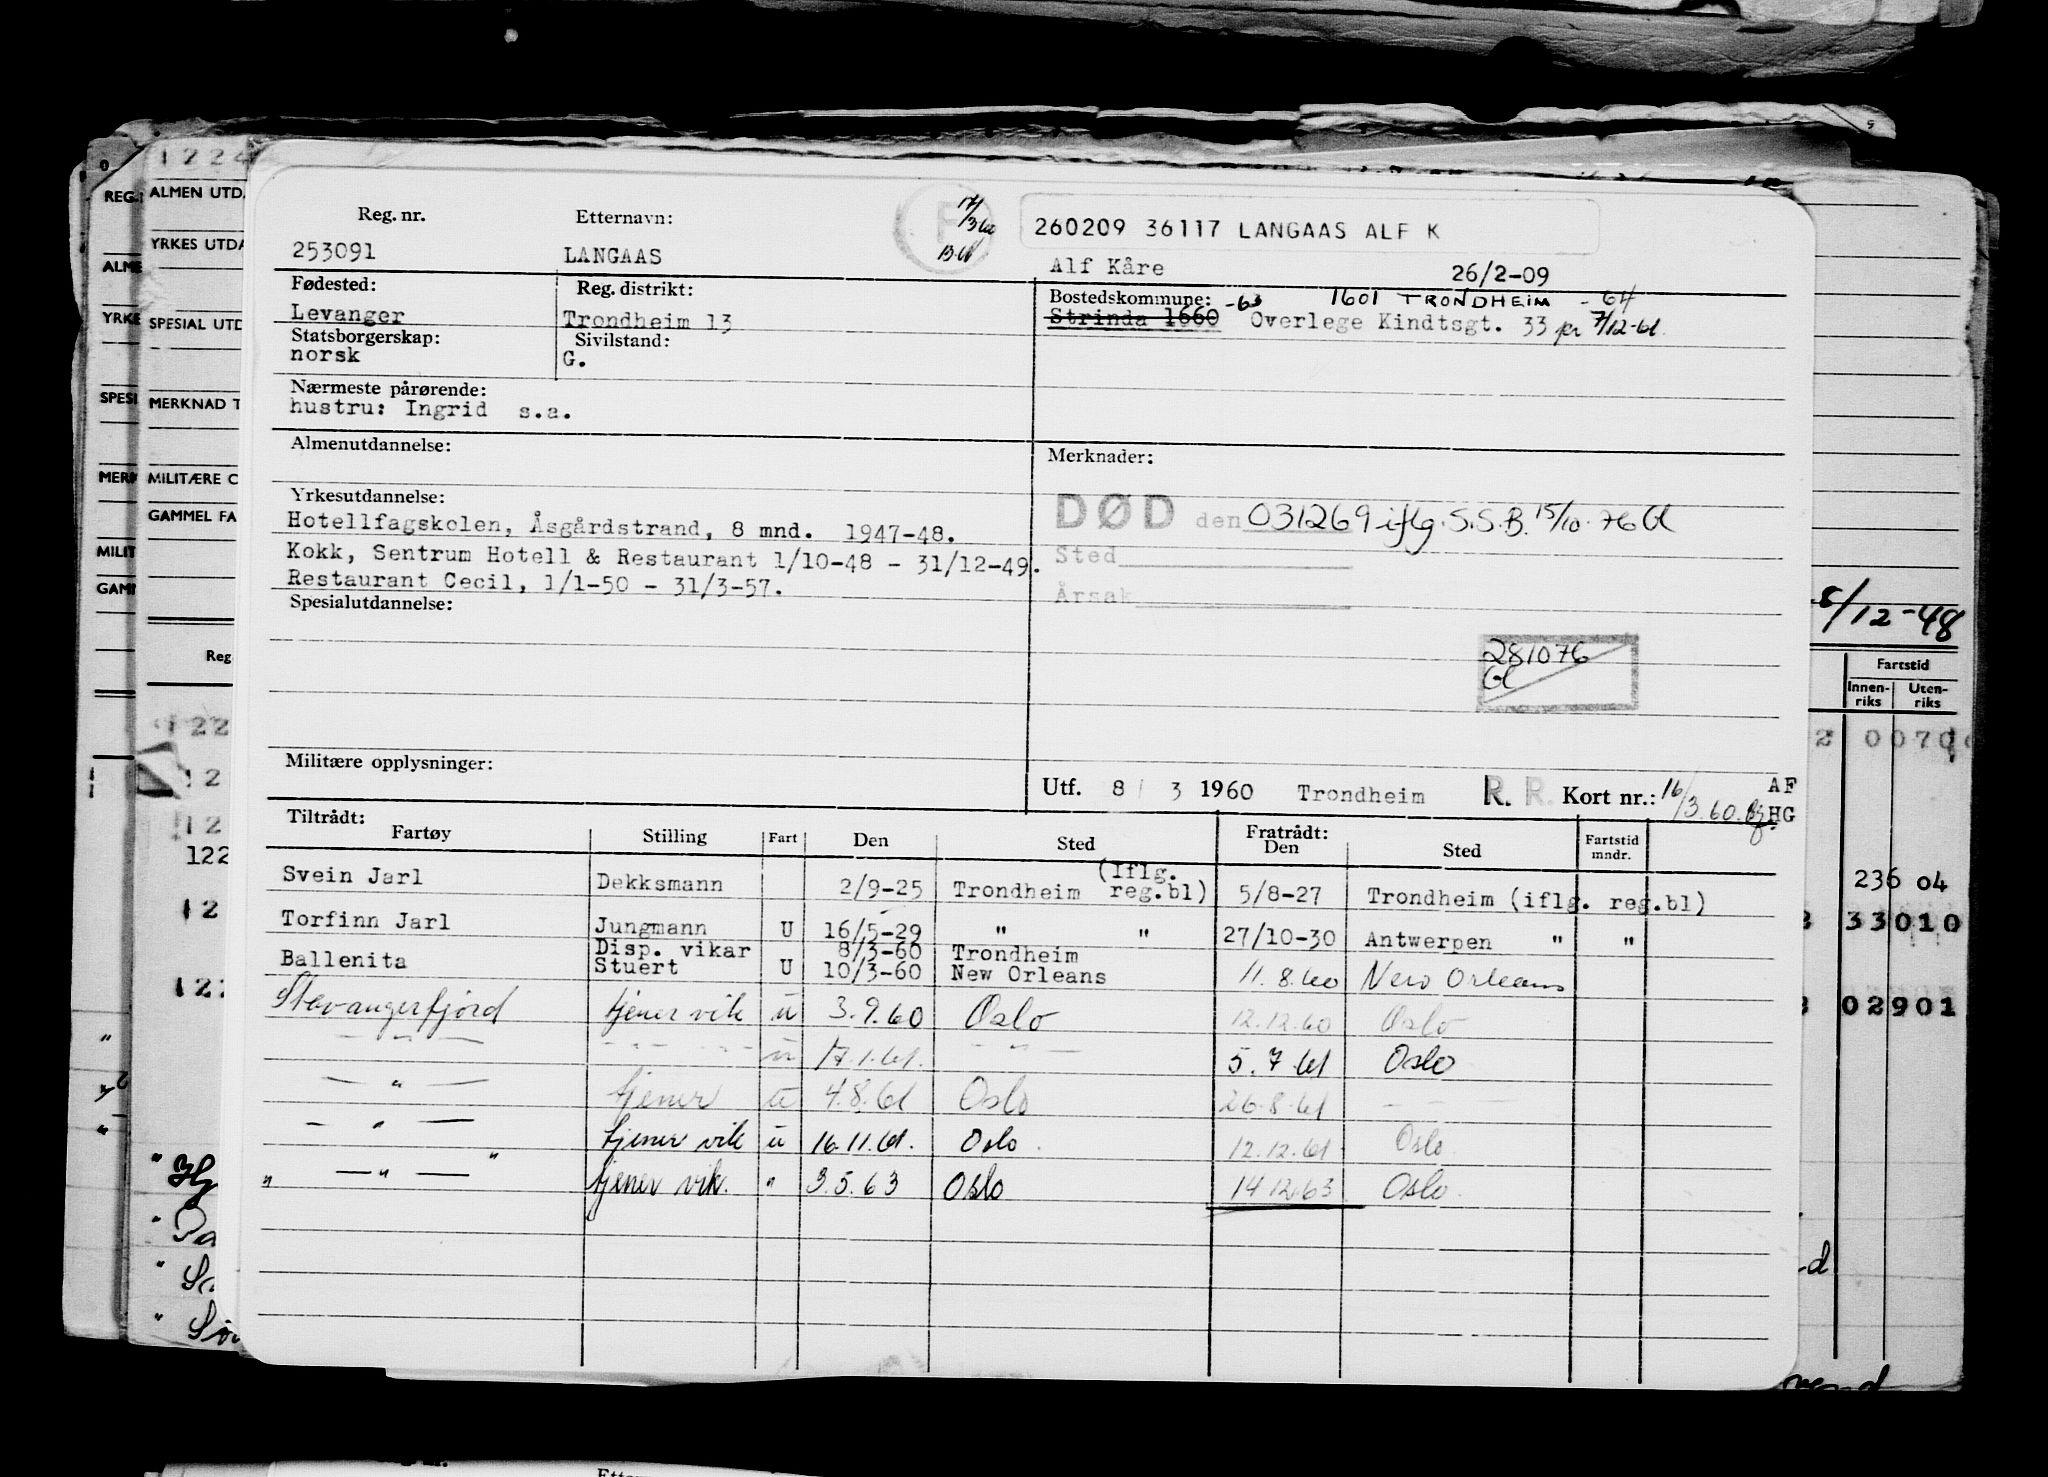 Reg. nr. Etternavn: F 17/3 60 260209 36117 LANGAAS ALF K
253091 LANGAAS Alf Kåre 26/2-09
Fødested: Reg. distrikt: Bostedskommune: -63 1601 TRONDHEIM - 64
Levanger Trondheim 13 Strinda 1660 Overlege Kindtsgt. 33 pr 7/12-61.
Statsborgerskap: Sivilstand:
norsk G.
Nærmeste pårørende:
hustru: Ingrid s.a.
Almenutdannelse: Merknader:
Yrkesutdannelse:
Hotellfagskolen, Åsgårdstrand, 8 mnd. 1947-48. DØD den 031269 iflg. S.S.B. 15/10-76
Kokk, Sentrum Hotell & Restaurant 1/10-48 - 31/12-49. Sted
Restaurant Cecil, 1/1-50 - 31/3-57. Årsak
Spesialutdannelse:
281076
Militære opplysninger:
Utf. 8/ 3 1960 Trondheim R. R. Kort nr.: 16/3.60. AF
HG
Tiltrådt: Fratrådt:
Fartøy Stilling Fart Den Sted Den Sted Fartstid mndr.
Svein Jarl Dekksmann 2/9-25 Trondheim (Iflg. reg.bl) 5/8-27 Trondheim (iflg. reg.bl)
Torfinn Jarl Jungmann U 16/5-29 " " 27/10-30 Antwerpen " "
Disp. vikar 8/3-60 Trondheim
Ballenita Stuert U 10/3-60 New Orleans 11.8.60 New Orleans
Stavangerfjord tjener vik u 3.9.60 Oslo 12.12.60 Oslo
— " — - " - u 17.1.61. - " - 5.7.61 Oslo
— " — tjener u 4.8.61 Oslo 26.8.61 - - -
- " — tjener vik u 16.11.61. Oslo. 12.12.61 Oslo
" — " — " tjener vik. " 3.5.63 Oslo 14.12.63 Oslo.
ALMEN UTD
YRKES UTDA
SPESIAL UTD
MERKNAD T
MILITÆRE O
GAMMEL FA
Reg
REG.
ALME
YRKE
SPESI
MERK
MILIT
GAMM
8/12-48
Fartstid
Innen-riks Uten-riks
0070
236 04
33010
02901